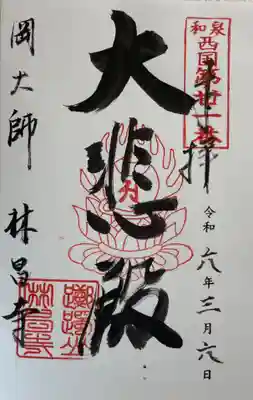 奉拝
和泉
西国第廿一番
令和六年三月六日
大悲殿
岡大師
林昌寺